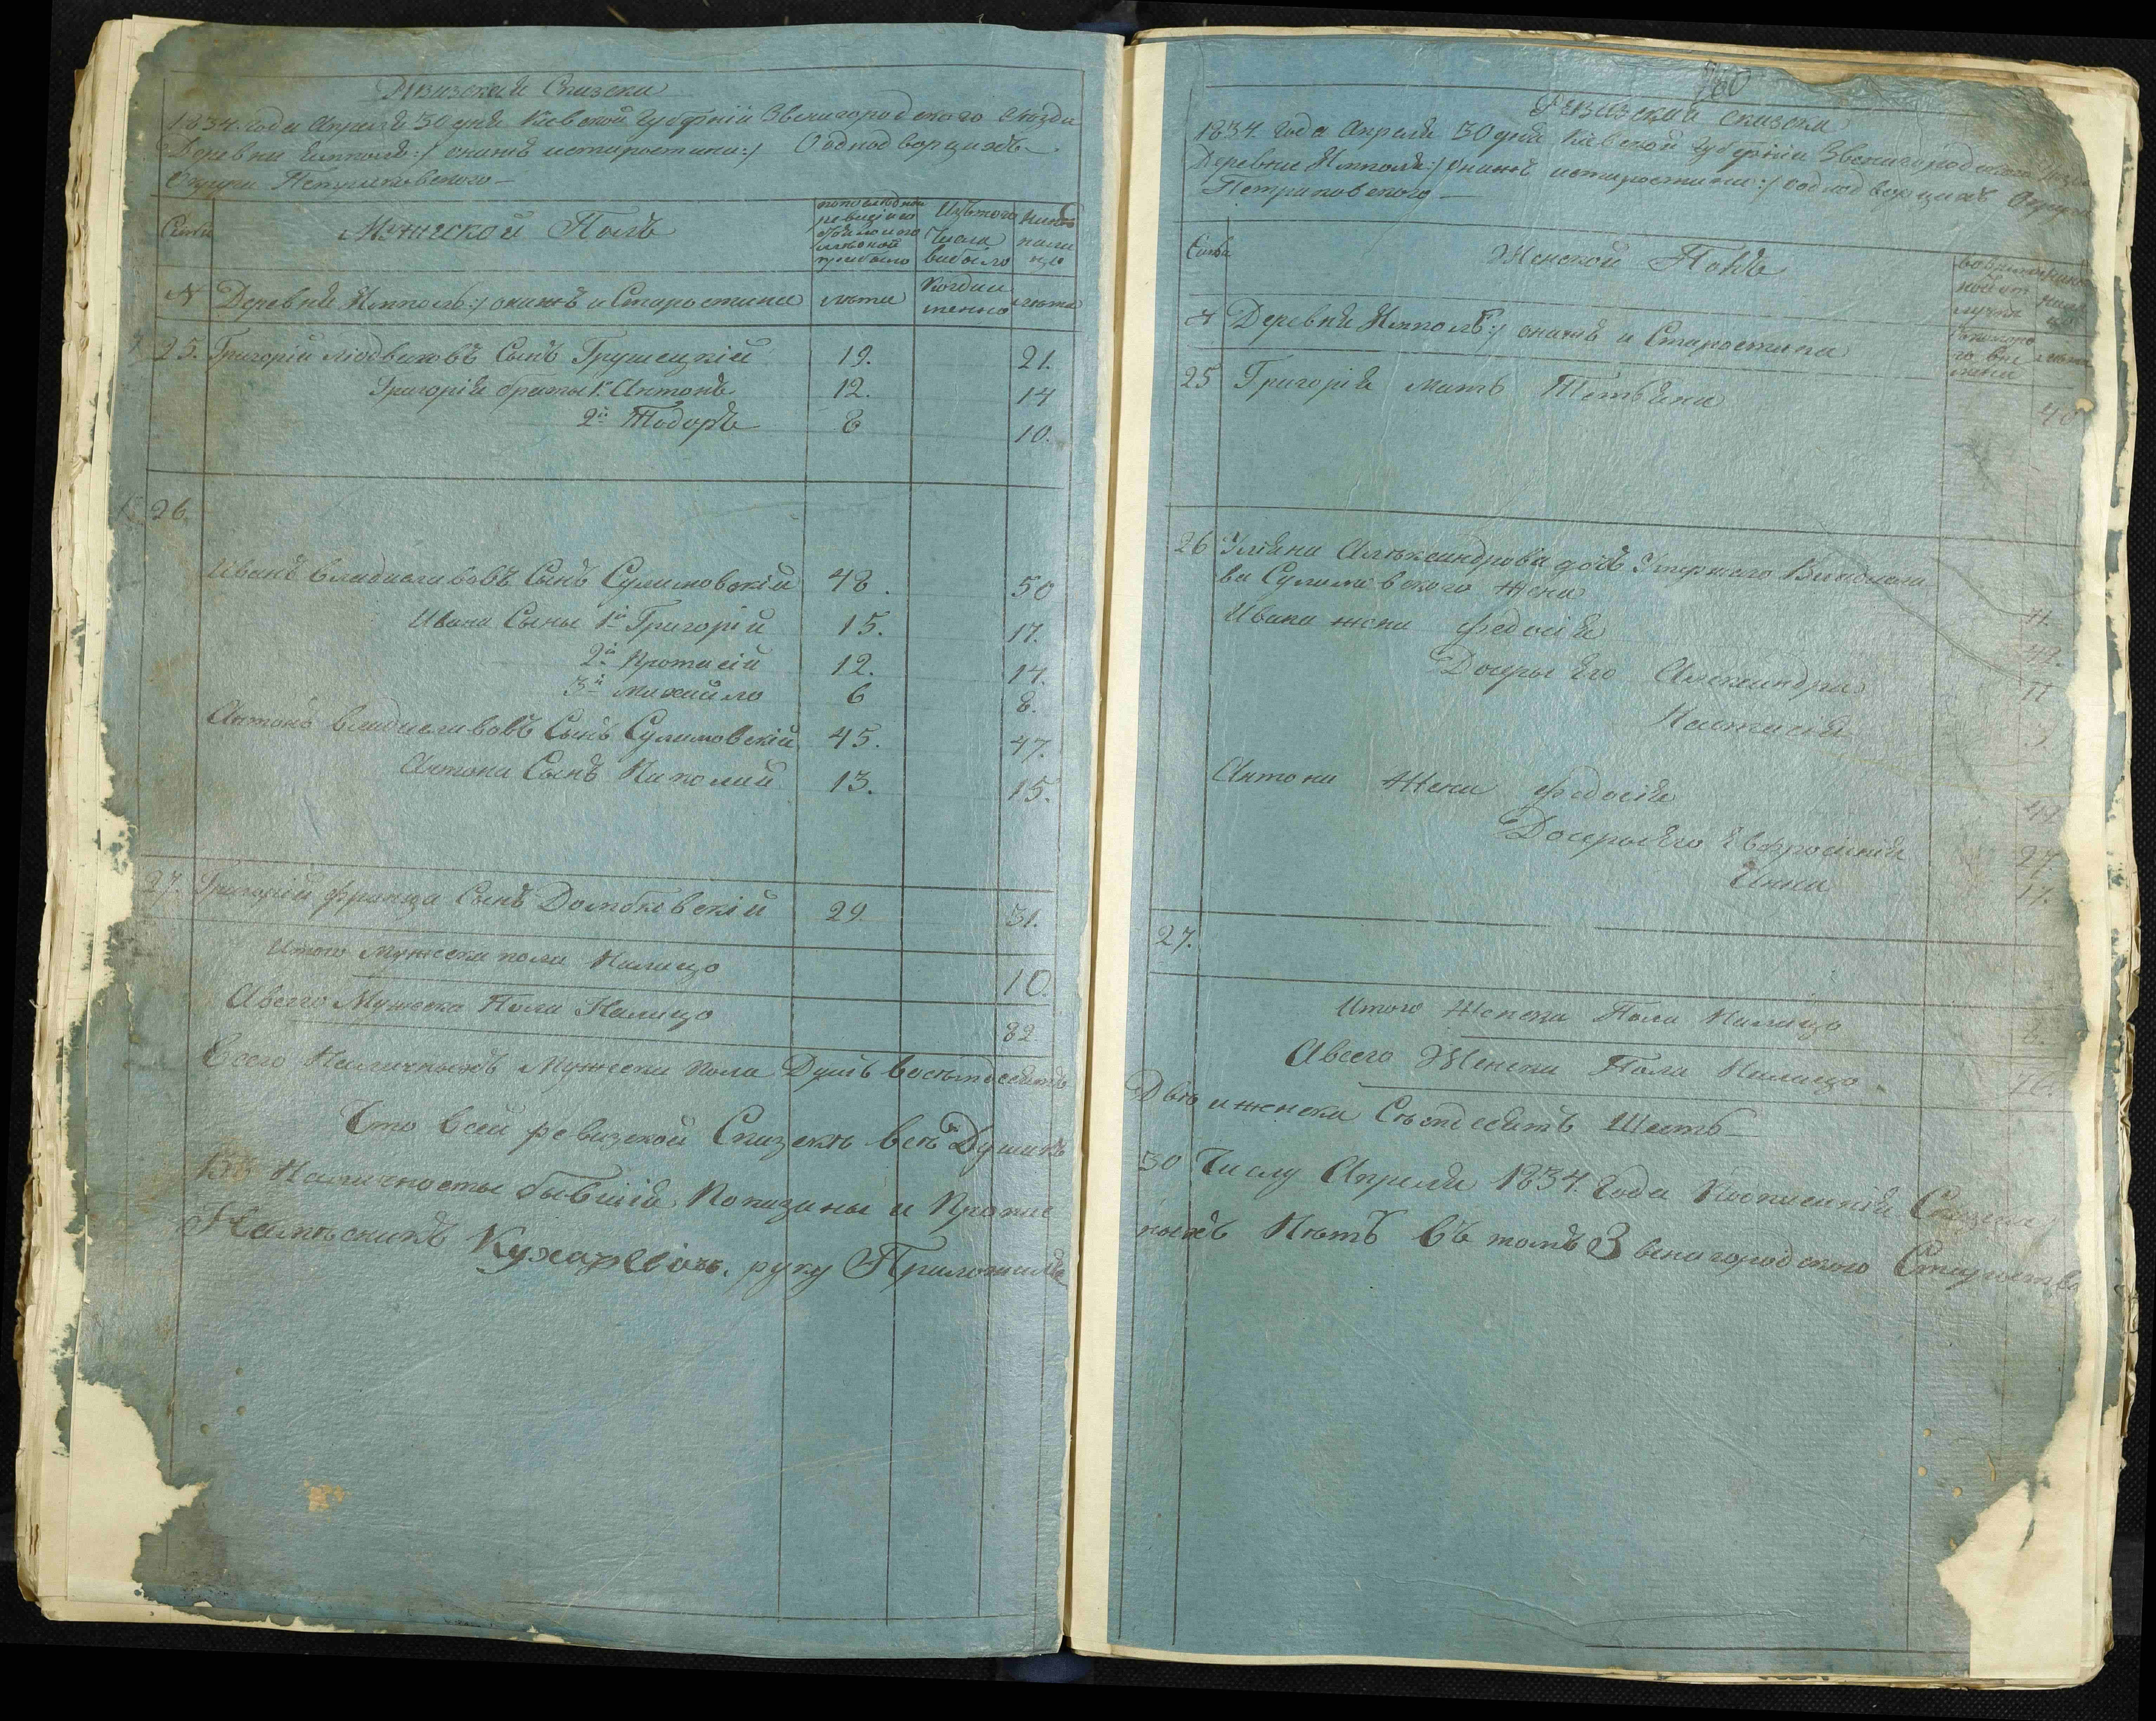 Ревизская Сказска
1834 года Апреля 30 дня Киевской Губерніи Звенигородского Уезда
Деревни Ямполь :/ онижъ истаростина :/ Однодворцихъ
Округи Петриковского
Семьи
Мужеской Полъ
Изътого Числа выбыло
№ Деревня Ямполь :/ онижъ и Старостина лета Когда имянно лета
25. Григорій людвиковъ Сынъ Грушецкій 19. 21.
Григорія браты 1й Антонъ 12. 14
2й Тодоръ 8 10.
26.
Иванъ владиславовъ Сынъ Сулимовскій 48. 50
Ивана Сыны 1й Григорій 15. 17.
2й Протасій 12. 14.
3й михайло 6 8.
Антонъ владиславовъ Сынъ Сулимовскій 45. 47.
Антона Сынъ Николай 13. 15.
27. Григорій франца Сынъ Домбковскій 29 31.
Итого Мужеска пола Налицо 10.
Авсего Мужеска Пола Налицо 82.
Всего Наличныхъ Мужеска пола Душъ восемдесятъ
Что всей ревизской Сказске все Души
Наличносты бывшія Показаны и Пропис
Наместникъ Кухаревичъ руку Приложилъ
180
Ревизская сказска
1834 года Апреля 30 дня Киевской Губерніи Звенигородского Уезда
Деревни Ямполя :/ онижъ истаростина :/ однодворцихъ Округи
Петриковского
Семьи
Женской Полъ
№ Деревня Ямполь :/ онижъ и Старостина
25 Григорія мать Тетьяна 40
26 Уляна Александрова дочь Умершего Владисла
ва Сулимовского жена 71.
Ивана жена федосія 42.
Дочеры Его Александра 11
Настасія 3.
Антона Жена федосія 44
Дочеры Его Евфросинія 27.
Анна 17.
27.
Итого Женска Пола Налицо 8.
Авсего Женска Пола Налицо 76.
Две и женска Семдесятъ Шесть
30 Числу Апреля 1834 Года Написанія Сказки
ныхъ Нетъ въ томъ Звенигородского Староства